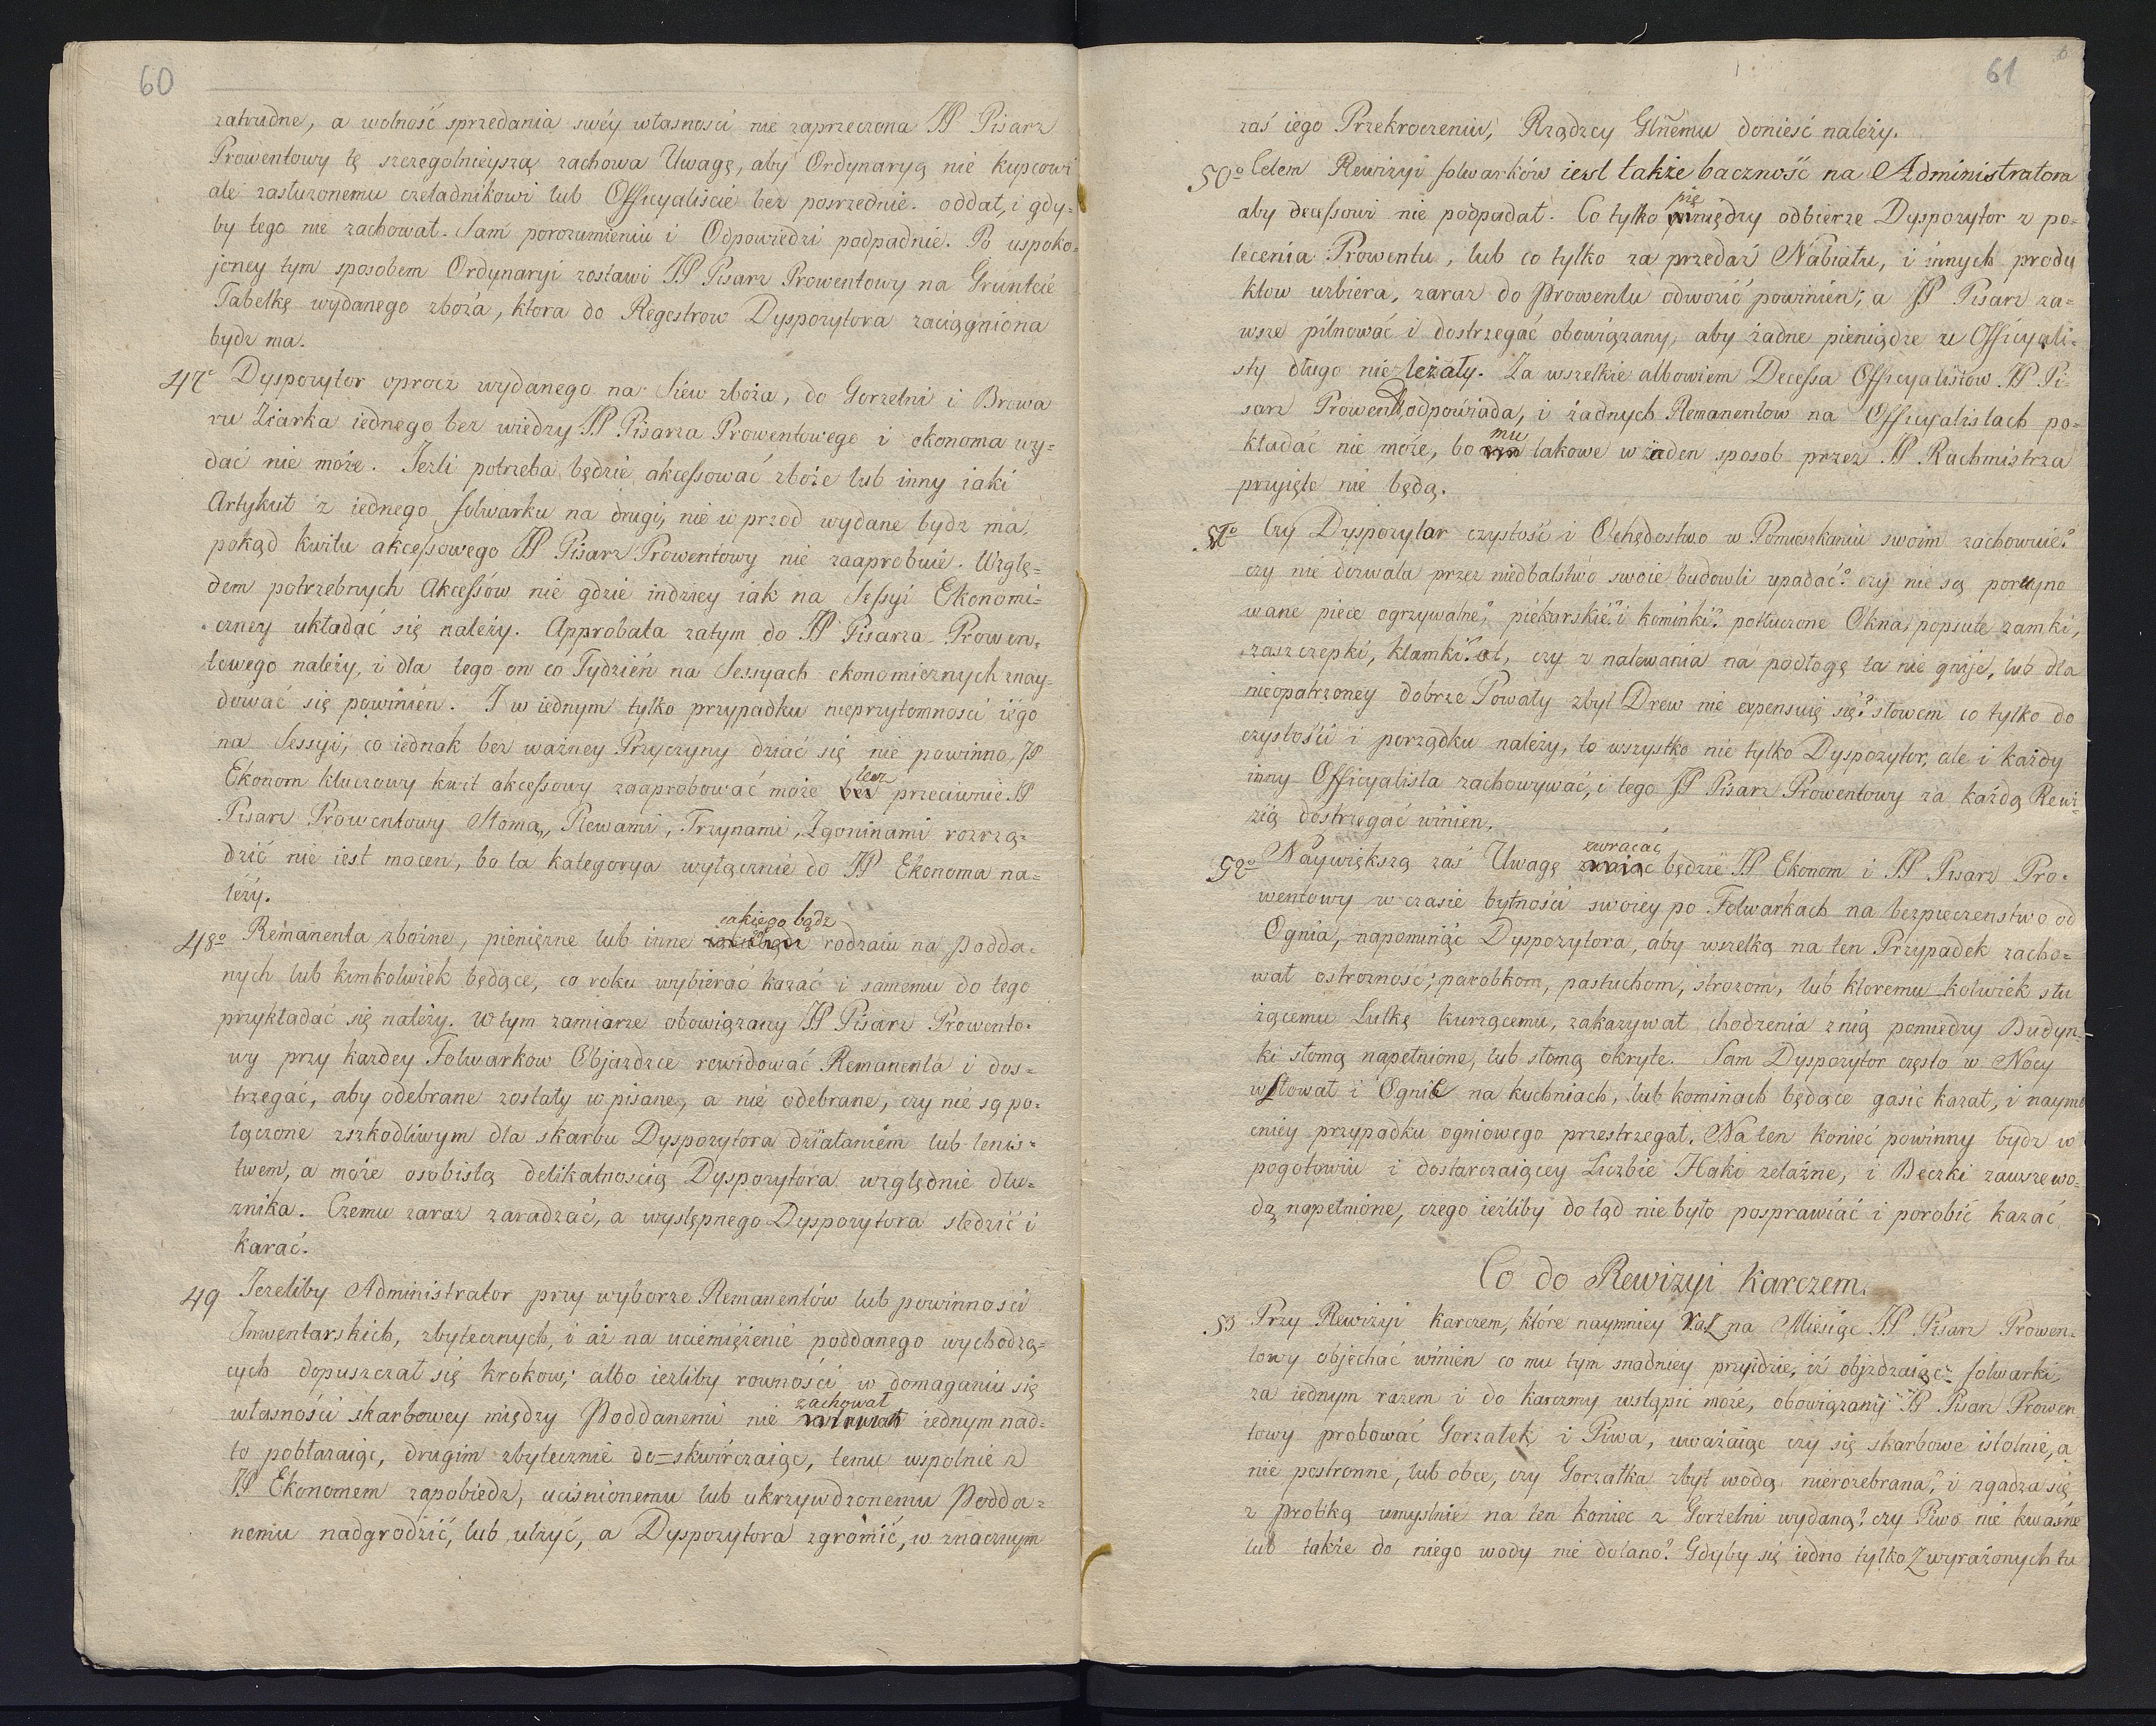 60
zatrudne, a wolność sprzedania swéy własnosci nie zaprzeczona JP Pisarz
Prowentowy tę szczegolnieyszą zachowa Uwagę, aby Ordynaryą nie kupcowi
ale zasłużonemu czeladnikowi lub Officyaliscie bez posrzednie. oddał, i gdy=
by tego nie zachował. Sam porozumieniu i Odpowiedzi podpadnie. Po uspoko=
joney tym sposobem Ordynaryi zostawi JP Pisarz Prowentowy na Gruntcie
Tabelkę wydanego zboża, ktora do Regestrow Dyspozytora zaciągniona
bydz ma.
47o Dyspozytor oprocz wydanego na Siew zboża, do Gorzelni i Browa
ru Ziarka iednego bez wiedzy JP Pisarza Prowentowego i ekonoma wy=
dać nie może. Jezli potrzeba będzie akcessować zboże lub inny iaki
Artykuł z iednego folwarku na drugi, nie w przod wydane bydz ma,
pokąd kwitu akcessowego JP Pisarz Prowentowy nie zaaprobuie. Wzglę=
dem potrzebnych Akcessów nie gdzie indziey iak na Sessyi Ekonomi=
czney układać się należy. Approbata zatym do JP Pisarza Prowen=
towego należy, i dla tego on co Tydzień na Sessyach ekonomicznych znay=
dować się powinien. J w iednym tylko przypadku nieprzytomnosci iego
na Sessyi, co iednak bez ważney Przyczyny dziać się nie powinno, JP
Ekonom kluczowy kwit akcessowy zaaprobować może też przeciwnie JP
Pisarz Prowentowy Słomą, Plewami, Trzynami, Zgoninami rozrzą=
dzić nie iest mocen, bo ta kategorya wyłącznie do JP Ekonoma na=
leży.
48o Remanenta zbożne, pieniężne lub inne iakiego bądz rodzaiu na podda=
nych lub kimkolwiek będące, co roku wybierać kazać i samemu do tego
przykładać się należy. W tym zamiarze obowiązany JP Pisarz Prowento=
wy przy kazdey Folwarkow Objazdzce rewidować Remanenta i dos=
trzegać, aby odebrane zostały wpisane, a nie odebrane, czy nie są po=
łączone zszkodliwym dla skarbu Dyspozytora działaniem lub lenis=
twem, a może osobistą delikatnoscią Dyspozytora względnie dłu=
znika. Czemu zaraz zaradzać, a występnego Dyspozytora sledzić i
karać.
49 Jezeliby Administrator przy wyborze Remanentów lub powinnosci
Inwentarskich, zbytecznych, i aż na uciemiężenie poddanego wychodzą=
cych dopuszczał się krokow; albo ieżliby rowności w domaganiu się
własności skarbowey między Poddanemi nie zachował iednym nad=
to pobłażaiąc, drugim zbytecznie do=skwirczaiąc, temu wspolnie z
JP Ekonomem zapobiedz, uciśnionemu lub ukrzywdzonemu Podda=
nemu nadgrodzić, lub ulżyć, a Dyspozytora zgromić, w znacznym
61
zaś iego Przekroczeniu, Rządzcy Glñemu donieść należy.
50o Celem Rewizyi folwarków iest także baczność na Administratora
aby decessowi nie podpadał. Co tylko pieniędzy odbierze Dyspozytor z po=
lecenia Prowentu, lub co tylko za przedaż Nabiału, i innych produ
ktow uzbiera, zaraz do Prowentu odwozić powinien; a JP Pisarz za=
wsze pilnować i dostrzegać obowiązany, aby żadne pieniądze u Officyali=
sty długo nie leżały. Za wszelkie albowiem Decessa Officyalistow JP Pi=
sarz Prowent: odpowiada, i żadnych Remanentow na Officyalistach po=
kładać nie może, bo mu takowe w żaden sposob przez JP Rachmistrza
przyięte nie będą.
51o Czy Dyspozytor czystość i Ochędostwo w Pomieszkaniu swoim zachowuie?
czy nie dozwala przez niedbalstwo swoie budowli upadać? czy nie są poruyno
wane piece ogrzywalne, piekarskie? i kominki? potłuczone Okna, popsute zamki,
zaszczepki, klamki? ot, czy z nalewania na podłogę ta nie gnije, lub dla
nieopatrzoney dobrze Powały zbyt Drew nie expensuię się? słowem co tylko do
czystości i porządku należy, to wszystko nie tylko Dyspozytor, ale i każdy
inny Officyalista zachowywać, i tego JP Pisarz Prowentowy za każdą Rewi=
zią dostrzegać winien.
52o Naywiększą zaś Uwagę zwracać będzie JP Ekonom i JP Pisarz Pro=
wentowy w czasie bytności swoiey po Folwarkach na bezpieczenstwo od
Ognia, napominąć Dyspozytora, aby wszelką na ten Przypadek zacho=
wał ostrozność; parobkom, pastuchom, strozom, lub ktoremu kolwiek słu
żącemu Lulkę kurzącemu, zakazywał chodzenia z nią pomiedzy Budyn=
ki słomą napełnione, lub słomą okryte. Sam Dyspozytor często w Nocy
wstował i Ognie na kuchniach, lub kominach będące gasić kazał, i naymo
cniey przypadku ogniowego przestrzegał. Na ten koniec powinny bydz w
pogotowiu i dostarczaiącey Liczbie Haki żelazne, i Beczki zawsze wo=
dą napełnione, czego ieżliby do tąd nie było posprawiać i porobić kazać
Co do Rewizyi Karczem.
53 Przy Rewizyi karczem, które naymniey raz na Miesiąc JP Pisarz Prowen=
towy objechać winien co mu tym snadniey przyidzie, iż objezdzaiąc folwarki
za iednym razem i do karczmy wstąpic może, obowiązany JP Pisarz Prowen
towy probować Gorzałek i Piwa, uważaiąc czy się skarbowe istotnie, a
nie postronne, lub obce, czy Gorzałka zbyt wodą nierozebrana? i zgadza się
z probką umyslnie na ten koniec z Gorzelni wydaną? czy Piwo nie kwaśne
lub także do niego wody nie dolano? Gdyby się iedno tylko z wyrażonych tu